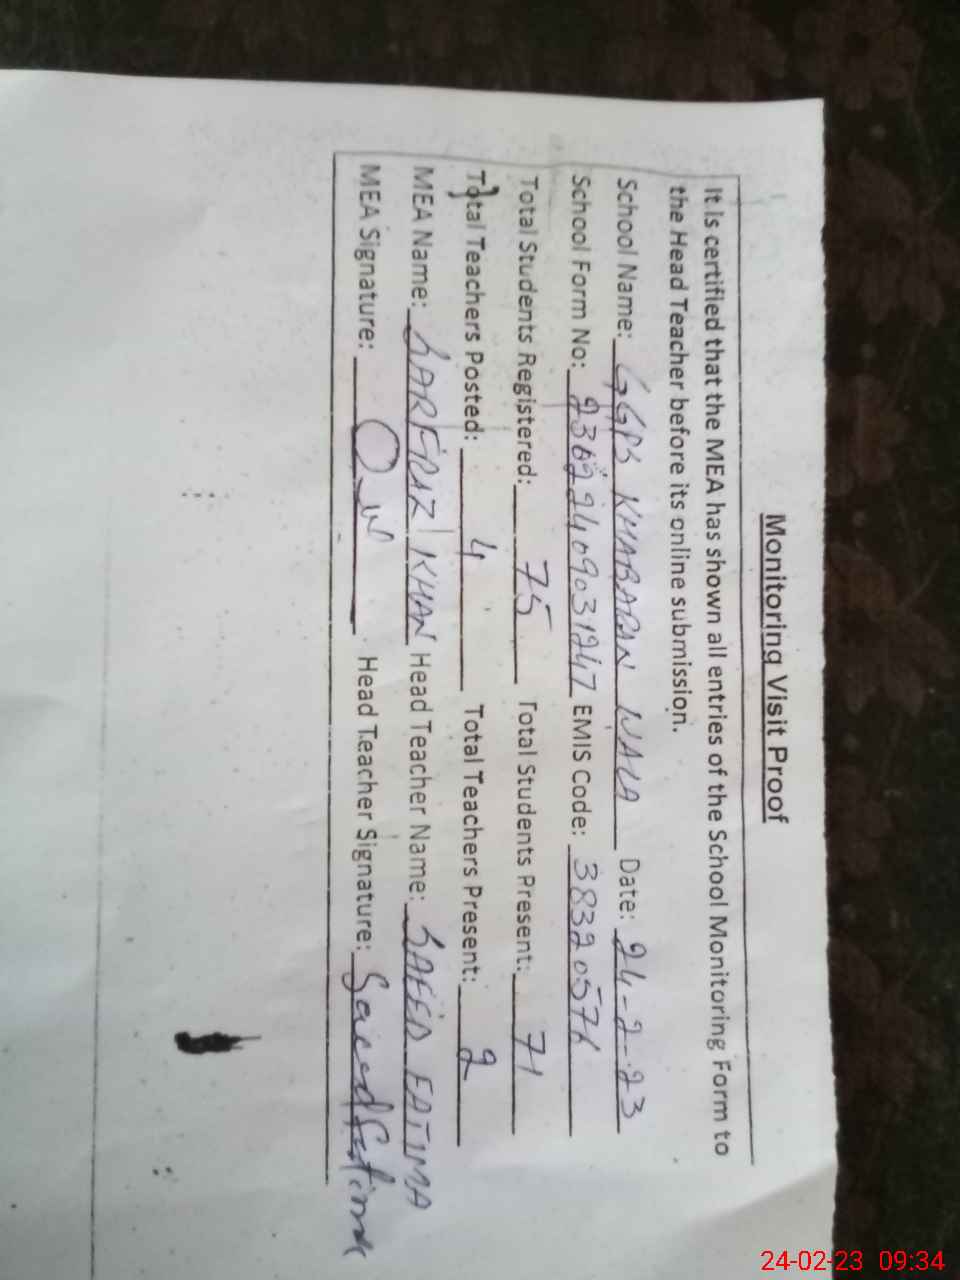 Monitoring Visit Proof
It is certified that the MEA has shown all entries of the School Monitoring Form to
the Head Teacher before its online submission.
School Name: GGPS KHABARAN WALA Date: 24-2-23
School Form No: 23022409031247 EMIS Code: 38320576
Total Students Registered: 75 Total Students Present: 71
Total Teachers Posted: 4 Total Teachers Present: 2
MEA Name: SARFRAZ KHAN Head Teacher Name: SAEED FATIMA
MEA Signature: Head Teacher Signature: Saeed Fatima
24-02-23 09:34